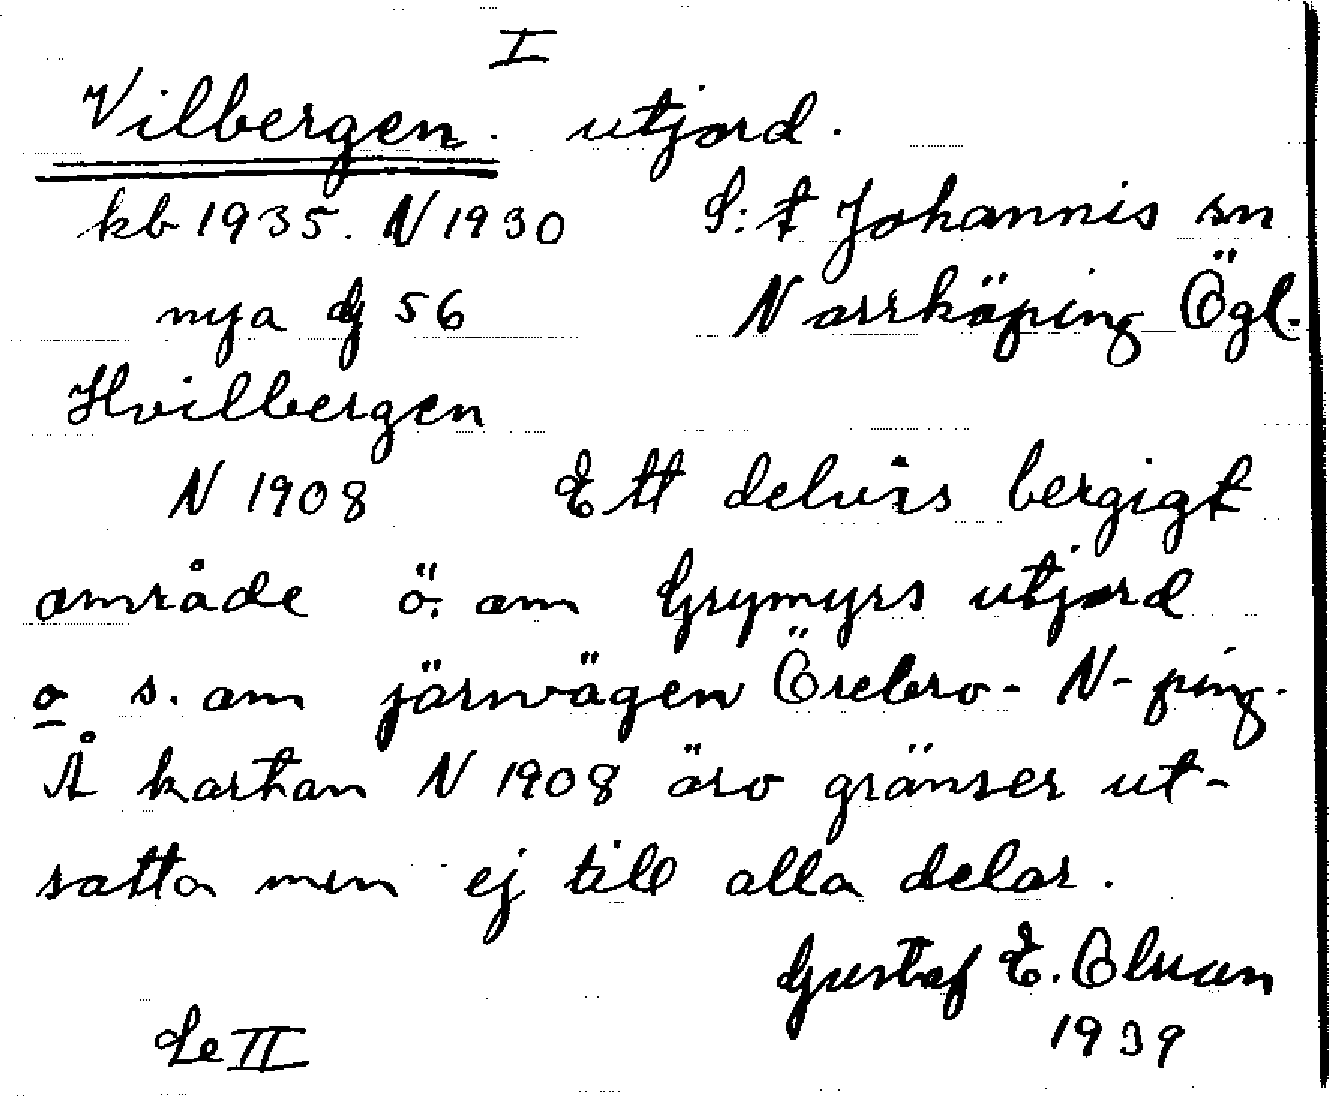 I
Vilbergen. utjord.
kb 1935. N 1930 S:t Johannis sn
nya dj 56 Norrköping Ögl.
Hvilbergen
N 1908 Ett delvis bergigt
område ö. om Grymyrs utjord
o s. om järnvägen Örebro - N-ping.
Å kartan N 1908 äro gränser ut-
satta men ej till alla delar.
Gustaf E. Olsson
1939
Se II